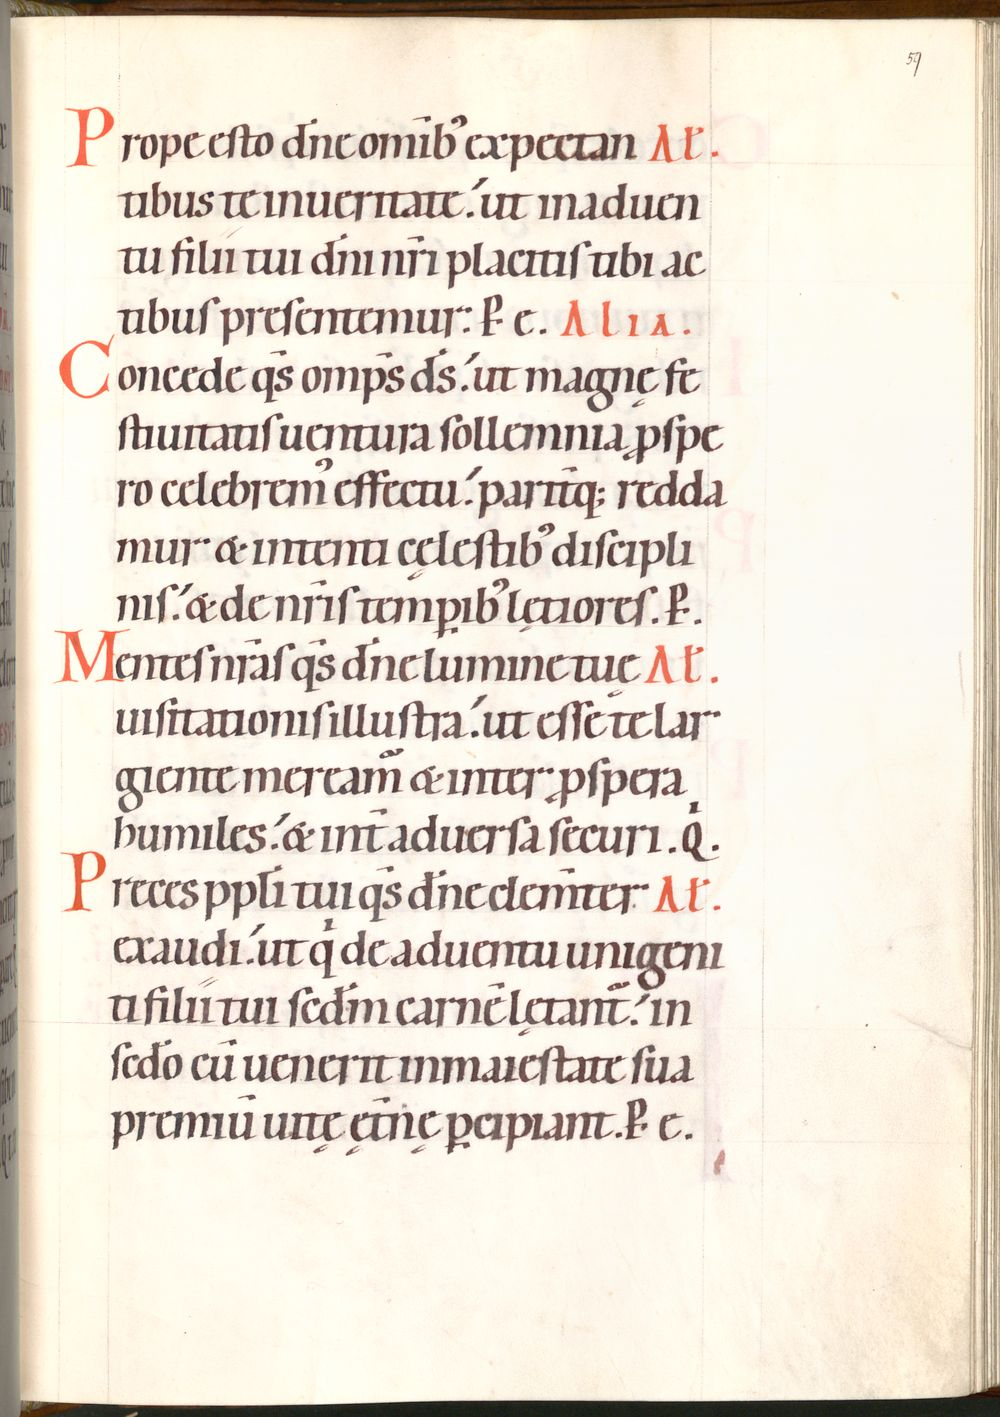 59
Prope esto dn̄e omīb᾽ expectan Ał.
tibus te in ueritate. ut in aduen
tu filii tui dn̄i nr̄i placitis tibi ac
tibus presentemur: P̵ e. Alia.
Concede qs̄ omps̄ ds̄. ut magnę fe
stiuitatis uentura sollemnia ꝓspe
ro celebrem᾽ effectu. paritq̄; redda
mur & intenti cęlestib᾽ discipli
nis. & de nr̄is temꝑib᾽ lętiores. P̵.
Mentes nr̄as qs̄ dn̄e lumine tuę Ał.
uisitationis illustra. ut esse te lar
giente meream̄ & inter ꝓspera
humiles. & int̄ aduersa securi. Q.
Preces ppłi tui qs̄ dn̄e clem̄ter Ał.
exaudi. ut q̍ de aduentu unigeni
ti filii tui scd̄m carnē lętant̄. in
scd̄o cū uenerit in maiestate sua
premiū uitę ęt̄nę ꝑcipiant. P̵ e.